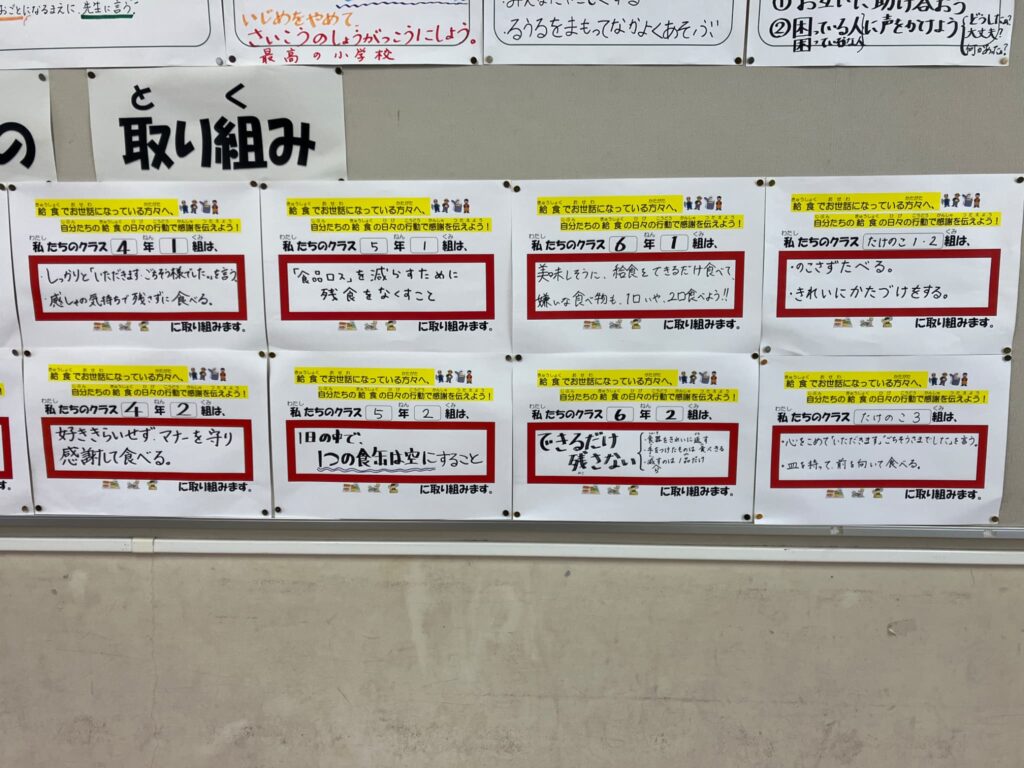 おごとになるまえに、先生に言う
いじめをやめて、
さいこうのしょうがっこうにしよう。
最高の小学校
みんなにやさしくする
るうるをまもってなかよくあそぶ
①お互いに助け合おう
②困っている人に声をかけよう
困っている人
どうしたの?
大丈夫!?
何があった?
の
とく
取り組み
給食でお世話になっている方々へ、
自分たちの給食の日々の行動で感謝を伝えよう!
私たちのクラス 4年 1組は、
・しっかりと「いただきます。ごちそう様でした。」を言う
・感しゃの気持ちで残さずに食べる。
に取り組みます。
給食でお世話になっている方々へ、
自分たちの給食の日々の行動で感謝を伝えよう!
私たちのクラス 5年 1組は、
「食品ロス」を減らすために
残食をなくすこと
に取り組みます。
給食でお世話になっている方々へ、
自分たちの給食の日々の行動で感謝を伝えよう!
私たちのクラス 6年 1組は、
美味しそうに、給食をできるだけ食べて、
嫌いな食べ物も、1口いや、2口食べよう!!
に取り組みます。
給食でお世話になっている方々へ、
自分たちの給食の日々の行動で感謝を伝えよう!
私たちのクラス たけのこ1・2組は、
・のこさずたべる。
・きれいにかたづけをする。
に取り組みます。
給食でお世話になっている方々へ、
自分たちの給食の日々の行動で感謝を伝えよう!
私たちのクラス 4年 2組は、
好ききらいせず、マナーを守り
感謝して食べる。
に取り組みます。
給食でお世話になっている方々へ、
自分たちの給食の日々の行動で感謝を伝えよう!
私たちのクラス 5年 2組は、
1日の中で、
1つの食缶は空にすること
に取り組みます。
給食でお世話になっている方々へ、
自分たちの給食の日々の行動で感謝を伝えよう!
私たちのクラス 6年 2組は、
できるだけ
残さない
・食器をきれいに返す
・手をつけたものは食べきる
・減すのは1品だけ
に取り組みます。
給食でお世話になっている方々へ、
自分たちの給食の日々の行動で感謝を伝えよう!
私たちのクラス たけのこ3組は、
・心をこめて「いただきます。」「ごちそうさまでした。」を言う。
・皿を持って、前を向いて食べる。
に取り組みます。